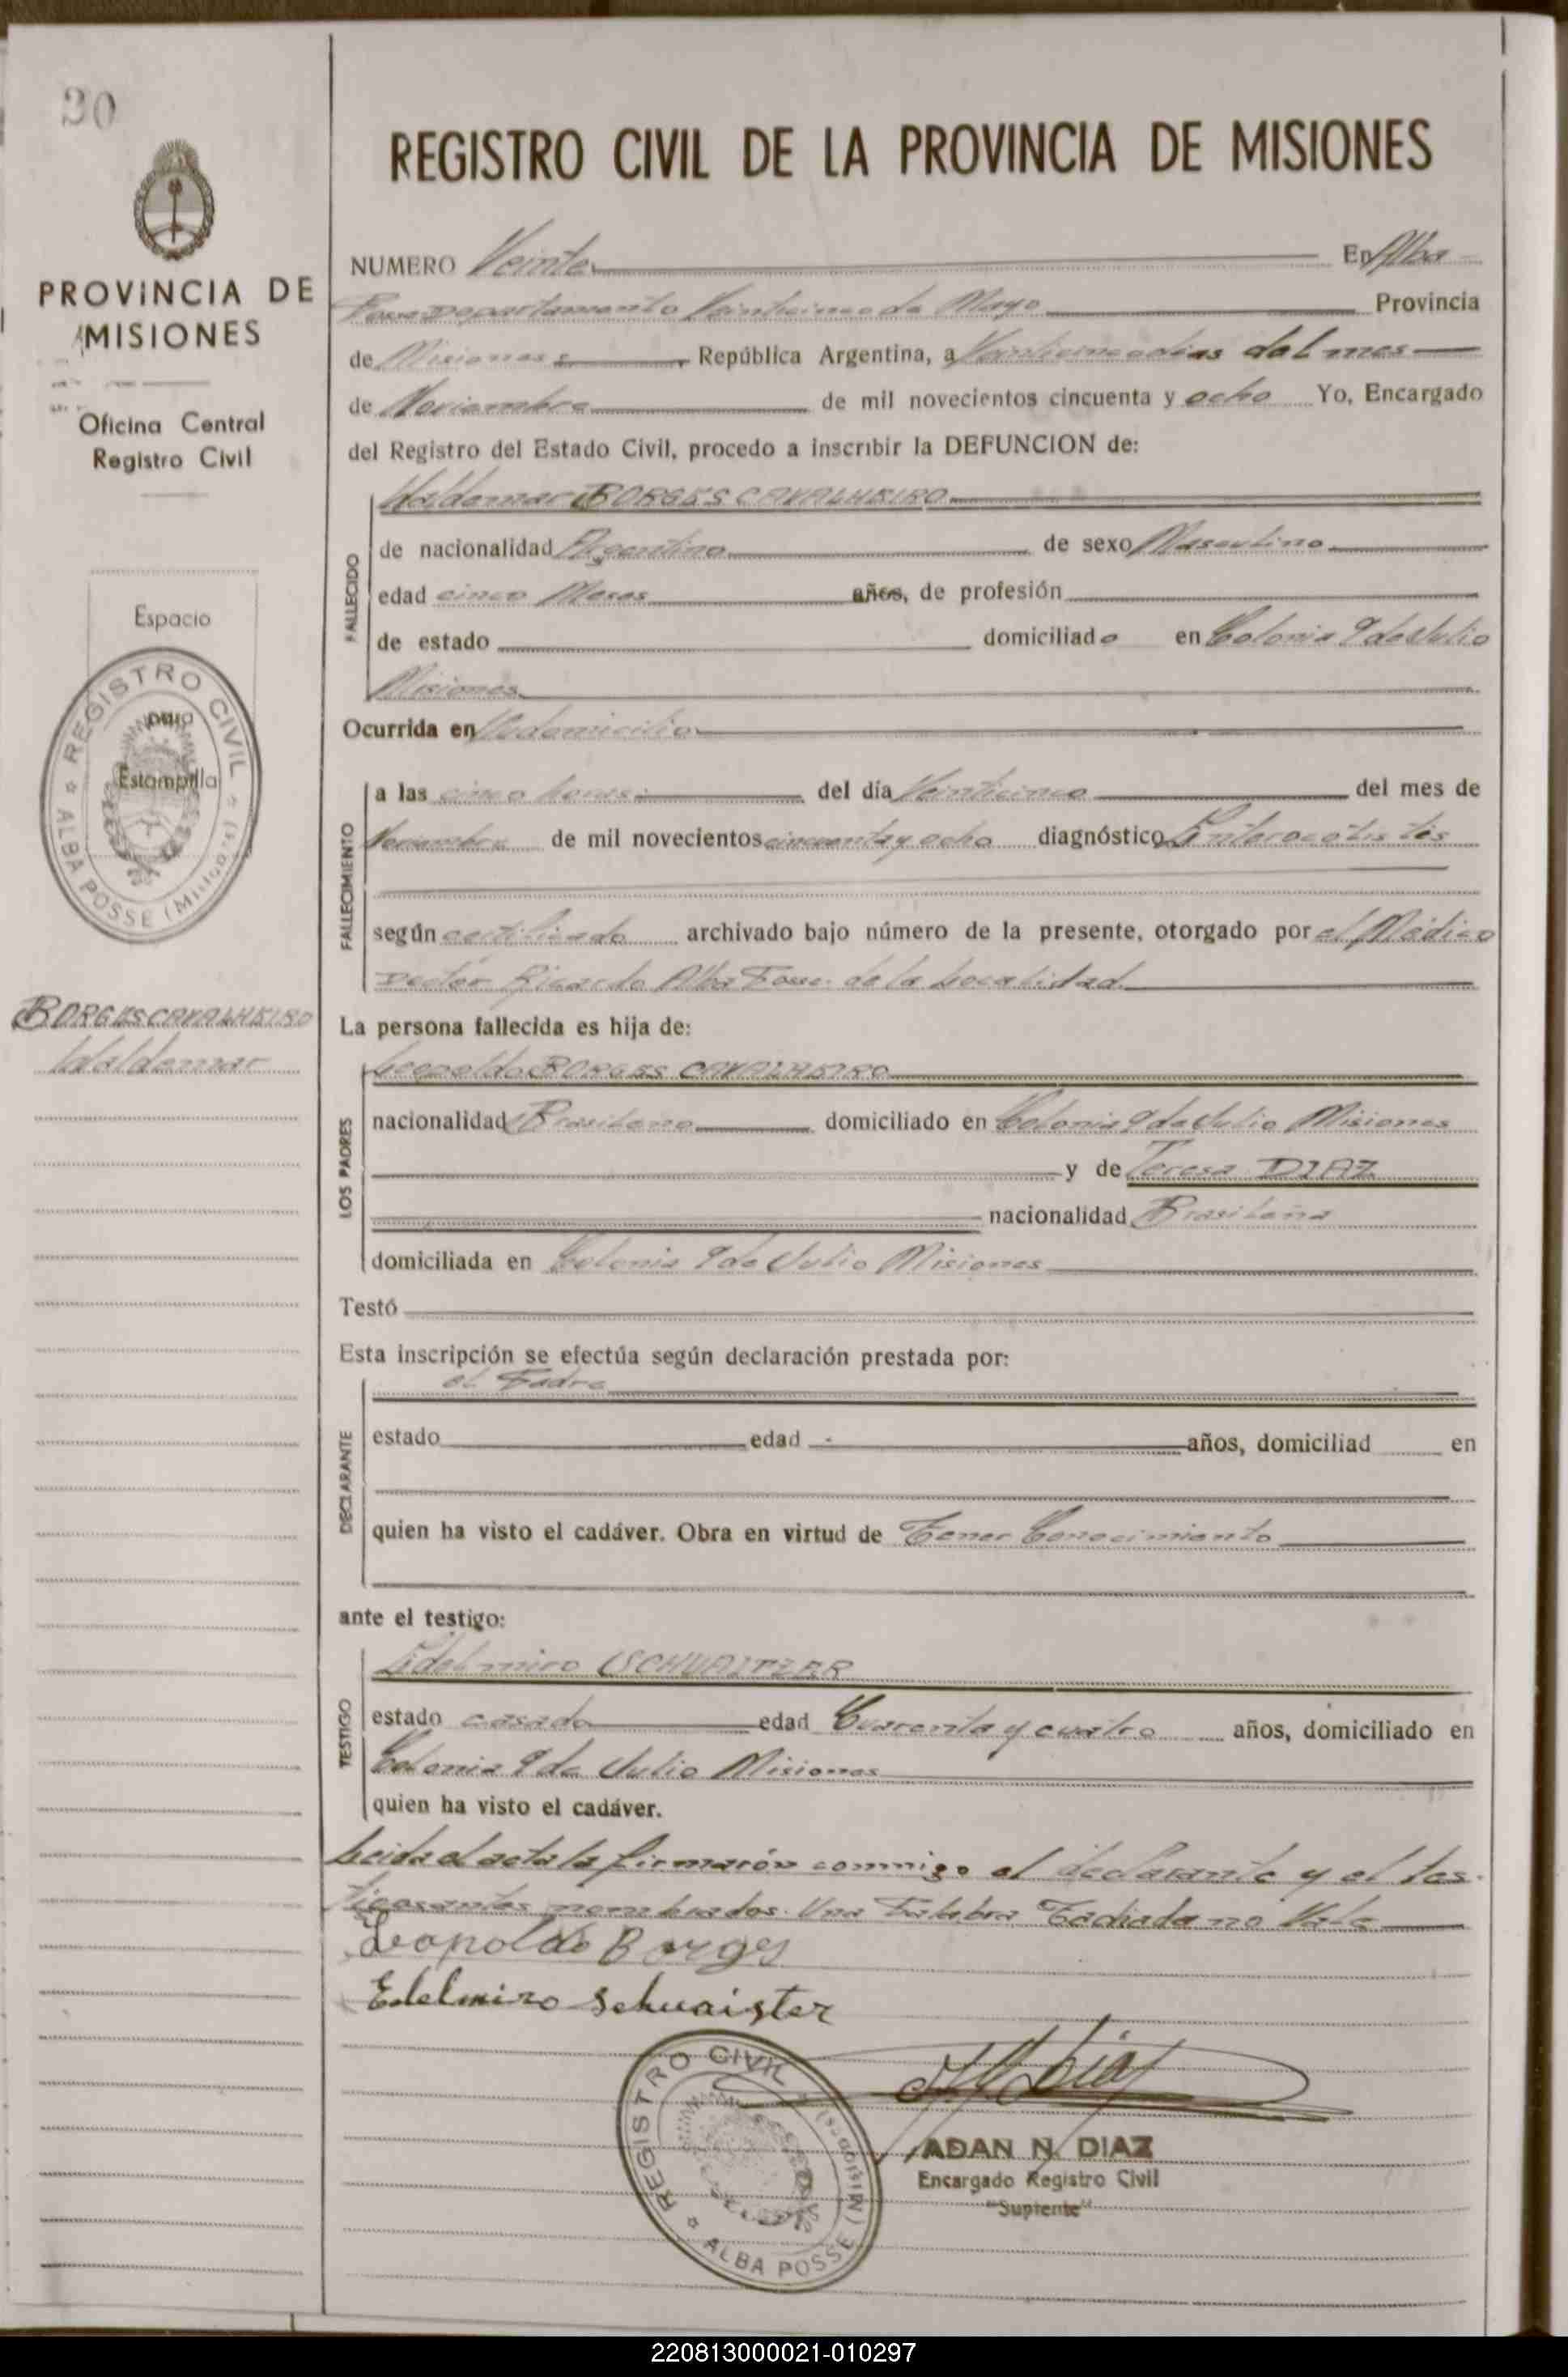 30
PROVINCIA DE
MISIONES
Oficina Central
Registro Civil
Espacio
para
Estampilla
REGISTRO CIVIL
ALBA POSSE (Misiones)
BORGES CAVALHEIRO
Waldemar
REGISTRO CIVIL DE LA PROVINCIA DE MISIONES
NUMERO Veinte En Alba
Posse Departamento Veinticinco de Mayo Provincia
de Misiones República Argentina, a Veinticinco dias del mes
de Noviembre de mil novecientos cincuenta y ocho Yo, Encargado
del Registro del Estado Civil, procedo a inscribir la DEFUNCION de:
FALLECIDO
Waldemar BORGES CAVALHEIRO
de nacionalidad Argentino de sexo Masculino
edad cinco Meses años, de profesión
de estado domiciliado en Colonia 9 de Julio
Misiones
Ocurrida en Su domicilio
FALLECIMIENTO
a las cinco horas del día Veinticinco del mes de
Noviembre de mil novecientos cincuenta y ocho diagnóstico
según certificado archivado bajo número de la presente, otorgado por el Médico
Doctor Ricardo Alba Posse de la Localidad
La persona fallecida es hija de:
LOS PADRES
Leopoldo BORGES CAVALHEIRO
nacionalidad Brasileño domiciliado en Colonia 9 de Julio Misiones
y de Teresa DIAZ
nacionalidad Brasileña
domiciliada en Colonia 9 de Julio Misiones
Testó
Esta inscripción se efectúa según declaración prestada por:
DECLARANTE
el Padre
estado edad años, domiciliad en
quien ha visto el cadáver. Obra en virtud de Tener Conocimiento
ante el testigo:
TESTIGO
Edelmiro SCHUAITZER
estado casado edad Cuarenta y cuatro años, domiciliado en
Colonia 9 de Julio Misiones
quien ha visto el cadáver.
Leida el acta la firmarón conmigo el declarante y el tes
tigo antes nombrados. Una Palabra Tachada no Vale
Leopoldo Borges
Edelmiro Schuaister
REGISTRO CIVIL
ALBA POSSE (Misiones)
ADAN N. DIAZ
Encargado Registro Civil
"Suplente"
220813000021-010297